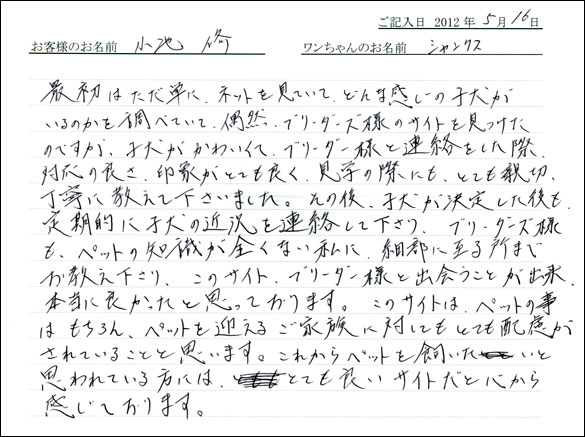 ご記入日 2012年5月16日
お客様のお名前 小池 脩 ワンちゃんのお名前 シャンクス
最初はただ単に、ネットを見ていて、どんな感じの子犬が
いるのかを調べていて、偶然、ブリーダーズ様のサイトを見つけた
のですが、子犬がかわいくて、ブリーダー様と連絡をした際、
対応の良さ、印象がとても良く、見学の際にも、とても親切、
丁寧に教えて下さいました。その後、子犬が決定した後も、
定期的に子犬の近況を連絡して下さり、ブリーダーズ様
も、ペットの知識が全くない私に、細部に至る所まで
お教え下さり、このサイト、ブリーダー様と出会うことが出来、
本当に良かったと思っております。このサイトは、ペットの事
はもちろん、ペットを迎えるご家族に対してもとても配慮が
されていることと思います。これからペットを飼いたいと
思われている方には、とても良いサイトだと心から
感じております。